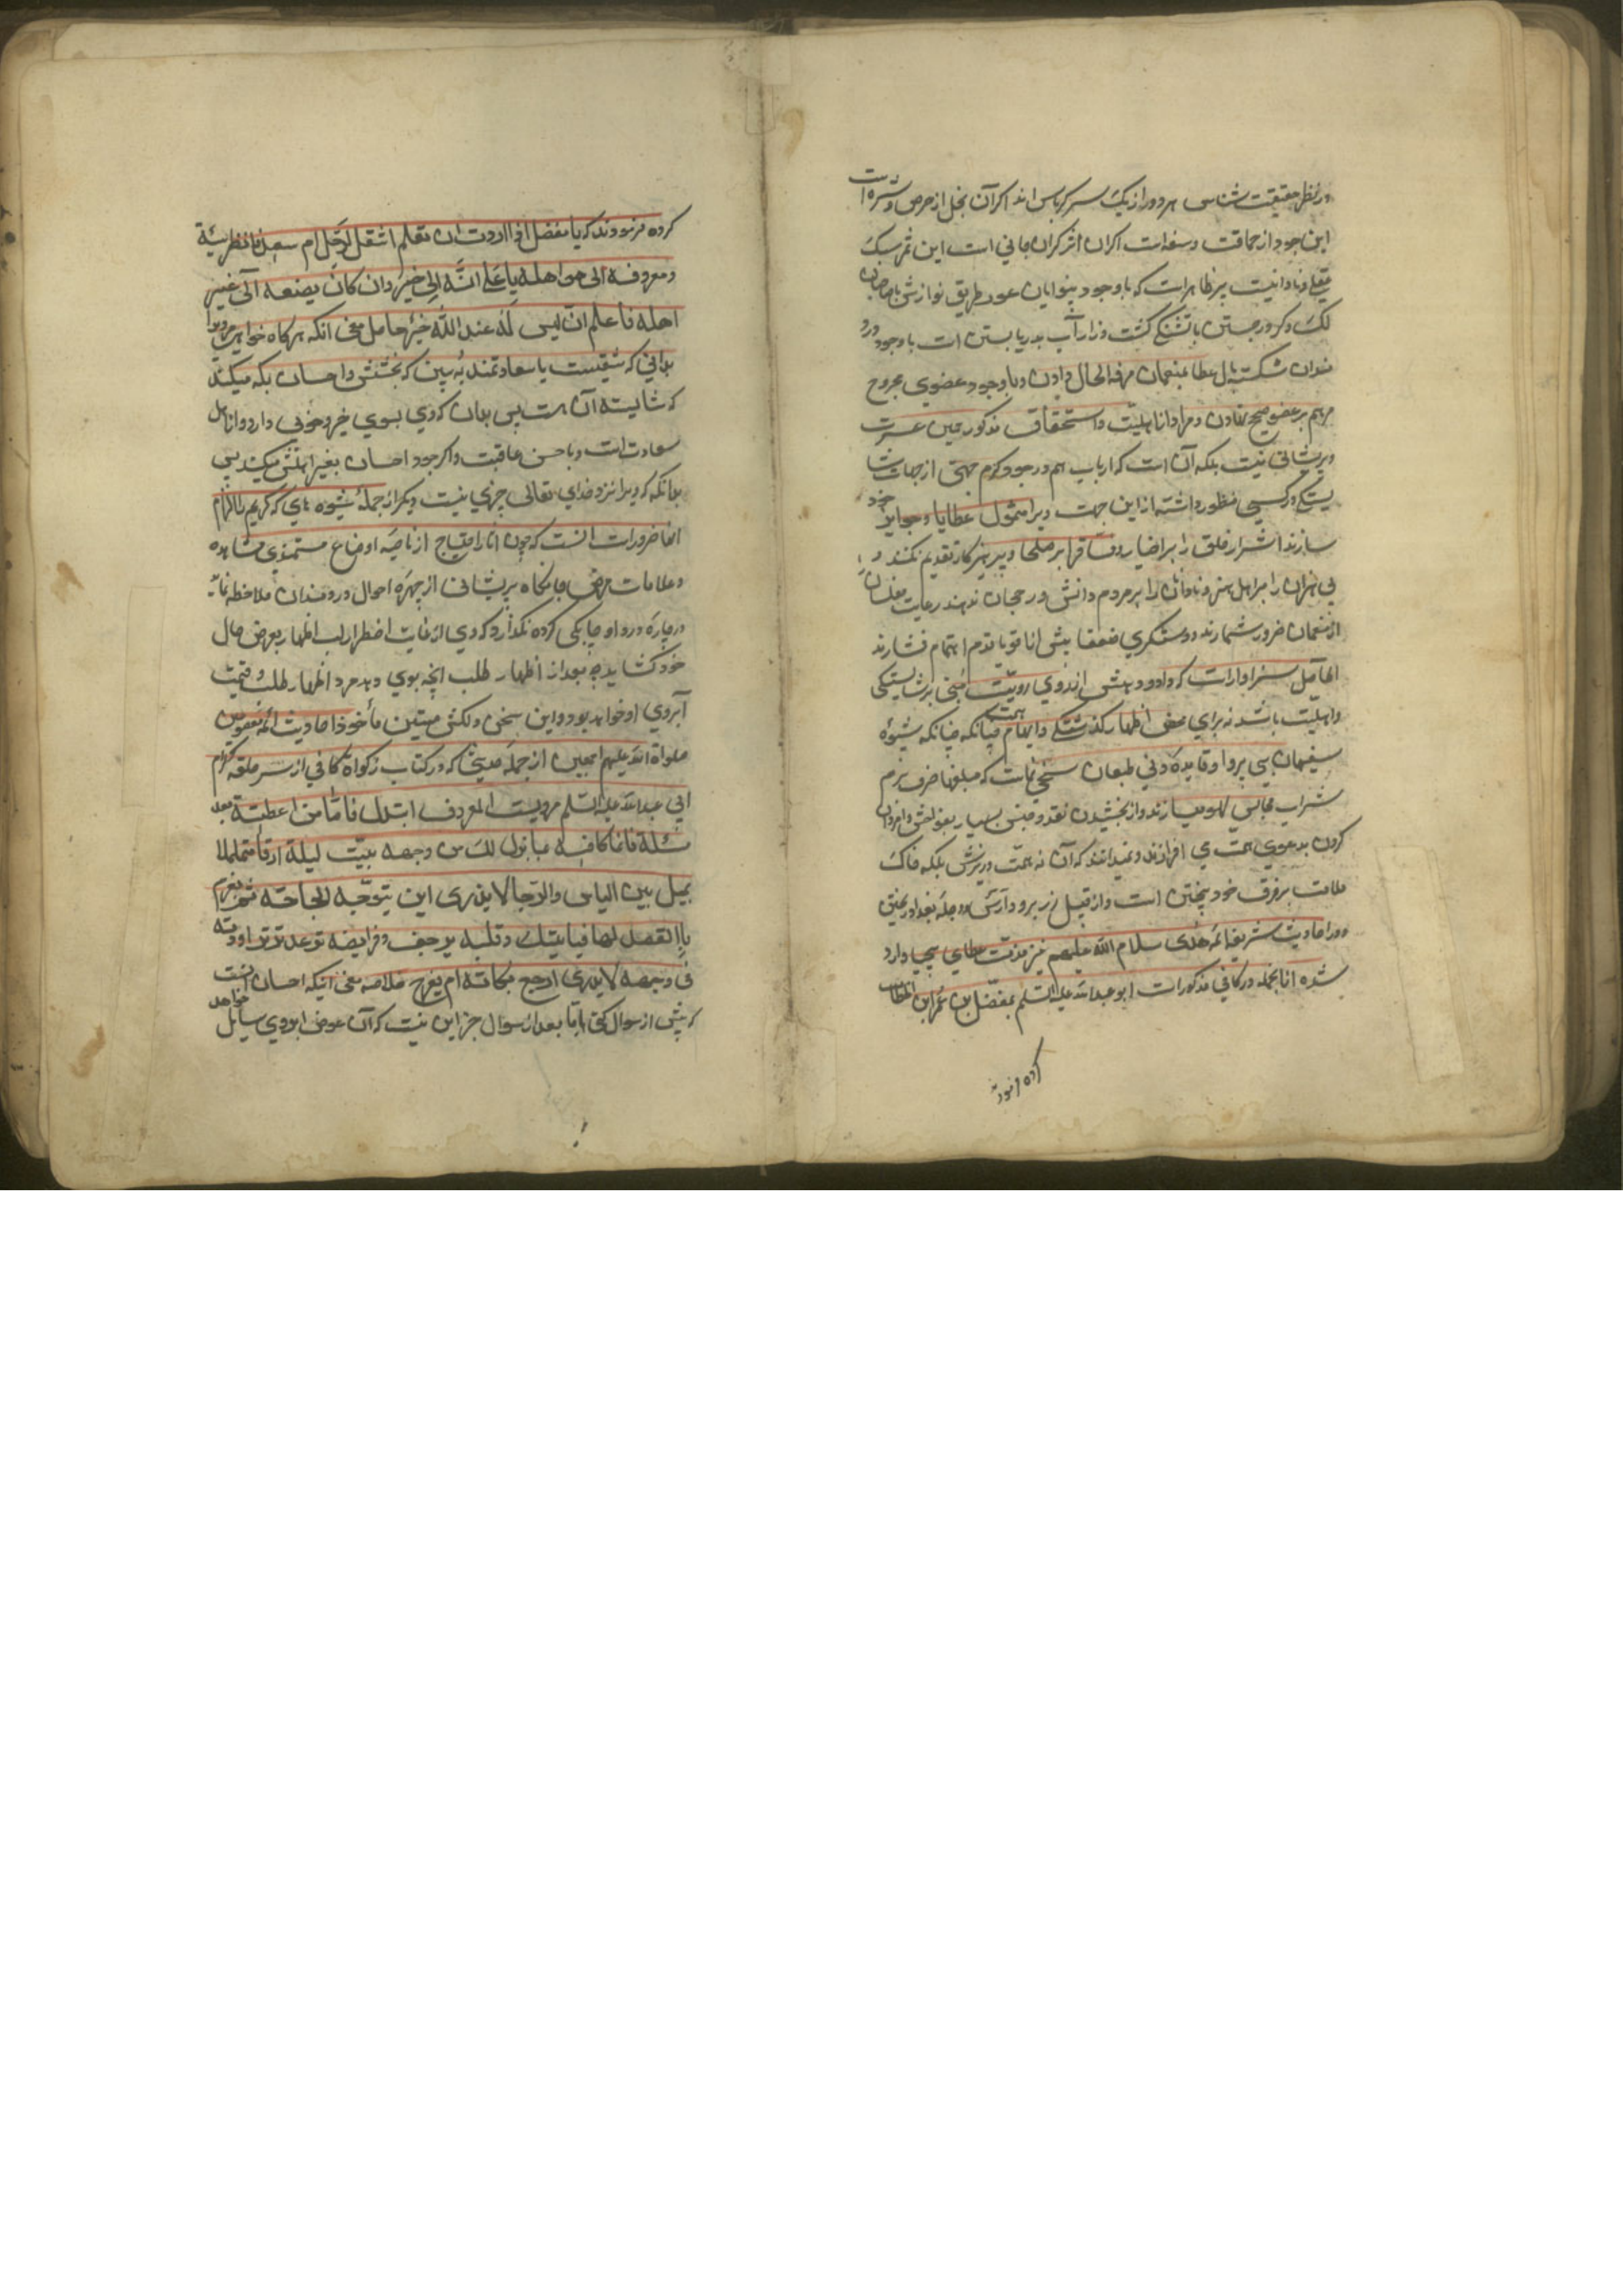 در نظر حقیقت شناس هر دو از یک سر کرباس اند اکر آن بخل از حرص و شره است
این جود از حماقت و سفه است اکر ان اثر کران جانی است این ثمر سبک
عقلی و نادانیست پر ظاهر است که باوجود بینوایان عور طریق نوازش با صاحبان
لک و کرور جستن با تشنکی کشت وزار آب بدریا بستن است باوجود درد
مندان شکسته بال عطا بمنعمان مرفه الحال دادن و باوجود عضوی مجروح
مرهم بر عضو صحیح نهادن و مراد از اهلیت و استحقاق مذکور همین عسرت
و پریشانی نیست بلکه آن است که ارباب همم در جود و کرم جهتی از جهات شا
یستکی در کسی منظور داشته از این جهت ویرا مشمول عطایا و جوایز خود
سازند اشرار خلق را بر اخیار و فساق را بر صلحا و پرهیز کار تقدیم نکنند و
بی هنران را بر اهل هنر و نادانان را بر مردم دانش ور رجحان ندهند رعایت مفلسان
از منعمان ضرور شمارند و دستکیری ضعفا بیش از اقویا قدم اهتمام فشارند
الحاصل سزاوار است که داد و دهش از روی رویت مبنی بر شایستکی
و اهلیت باشد نه برای محض اظهار کذشتکی و ابهام همت چنانکه شیوه
سفیهان بی پروا و قاعده دنی طبعان سخی نماست که مبلغها صرف بزم
شراب و مجالس لهو میسازند و از بخشیدن نقد و جنس بسیار
کردن بدعوی همت می افرازند و نمیدانند که آن نه همت ورزش بلکه خاک
ملامت بر فرق خود بیختن است و از قبیل زر بر
و در احادیث شریفه ائمه هدی سلام الله علیهم نیز مذمت عطای بیجا وارد
شده از انجمله در کافی مذکور است ابو عبد الله علیه السلام بمفضل بن عمر این خطاب
کرده فرمودند
کرده فرمودند که یا مفضل اذا اردت ان تعلم اشقی الرجل ام سعید فانظر سیبه
و معروفه الی من اهله یا علی انه الی خیر وان کان یصنعه الی غیر
اهله فاعلم انه لیس له عند الله خیر حاصل معنی انکه هر کاه خواهی مردیرا
بدانی که شقیست یا سعادتمند به بین که بخشش و احسان بکه میکند
که شایسته آن هست پس بدان که وی بسوی خیر و خوبی دارد و از اهل
سعادت است و با حسن عاقبت و اکر جود و احسان بغیر اهلش میکند پس
بدانکه که ویرا نزد خدای تعالی چیزی نیست دیکر از جمله شیوه های که کریم را الزام
انها ضرور است انست که چون اثار احتیاج از ناصیه اوضاع مستمندی مشاهده
و علامات پریشانی از چهره احوال دردمندان ملاحظه نماید
در چاره درد او چابکی کرده نکذارد که وی از غایت اضطرار لب اظهار بعرض حال
خود کشاید چه بعد از اظهار طلب انچه بوی دهد مزد اظهار طلب و قیمت
آبروی او خواهد بود و این سخن دلکش متین مأخوذ از احادیث ائمه معصومین
صلواة الله علیهم اجمعین از جمله حدیثی که در کتاب زکواة کافی از سر حلقه کرام
ابی عبد الله علیه السلام مرویست المعروف ابتداء فاما من اعطیته بعد
مسئلة فانما کافیته بما بذل لک من وجهه یبیت لیلة ارقا متململا
یمیل بین الیاس والرجا لا یدری این یتوجه لحاجته ثم یعزم
بالقصد لها فیاتیک وقلبه یرجف وفرایصه ترعد
فی وجهه لا یدری ارجع بکابة ام بفرح خلاصه معنی اینکه احسان انست
که پیش از سوال کنی اما بعد از سوال جز این نیست که آن عوض ابروی سایل خواهد